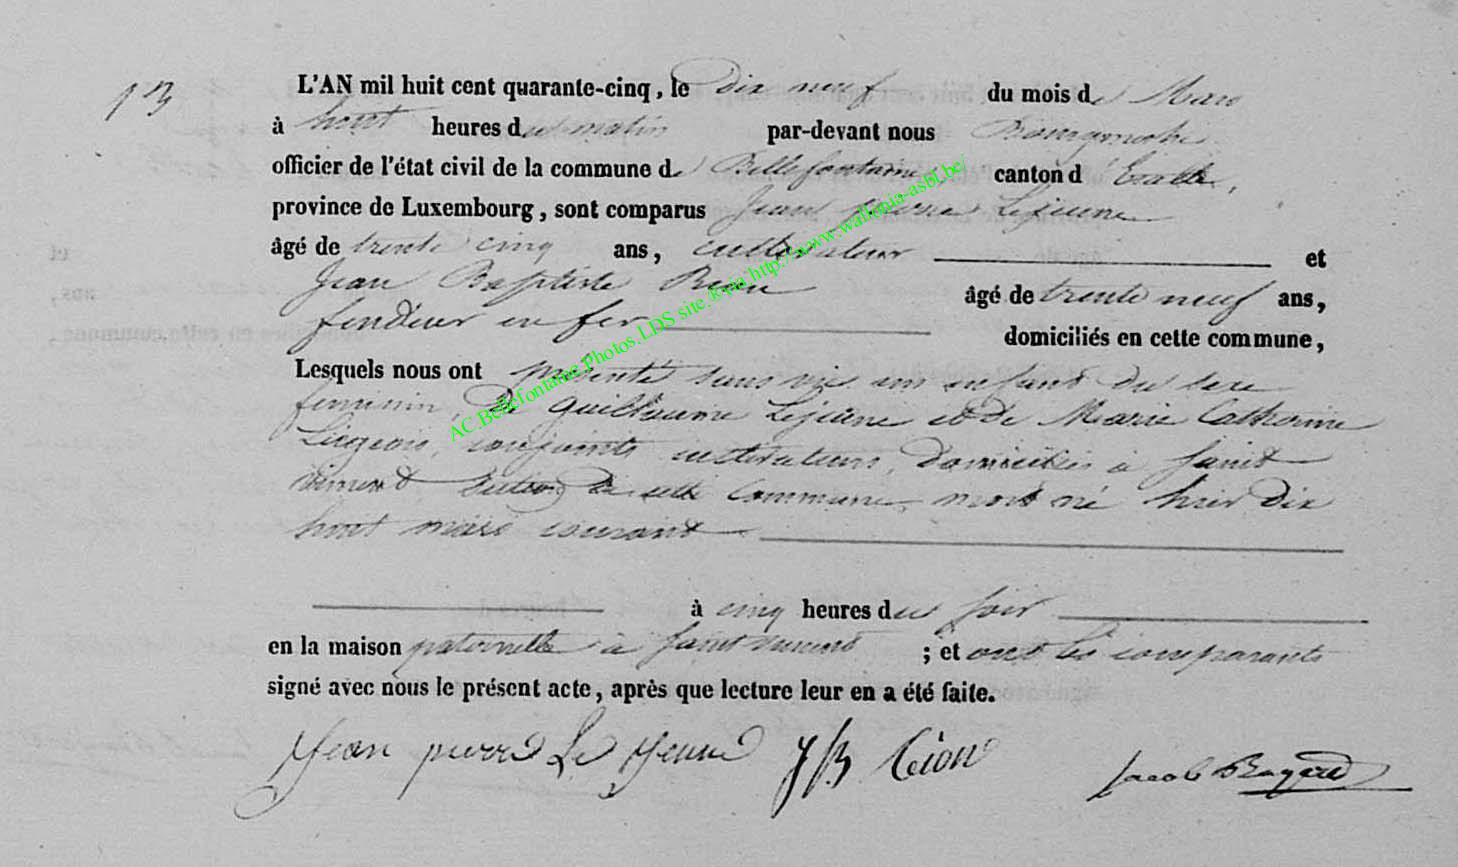 13
L'AN mil huit cent quarante-cinq, le dix neuf du mois de Mars
à huit heures du matin par-devant nous Bourgmestre
officier de l'état civil de la commune de Bellefontaine, canton d'Etalle,
province de Luxembourg, sont comparus Jean pierre Lejeune
âgé de trente cinq ans, cultivateur et
Jean Baptiste âgé de trente neuf ans,
fendeur en fer domiciliés en cette commune,
Lesquels nous ont présenté sans vie un enfant du sexe
feminin, de Guillaume Lejeune et de Marie Catherine
Liegeois, conjoints cultivateurs, domiciliés à Saint
vincent section de cette Commune, mort né hier dix
huit mars courant
à cinq heures du soir
en la maison paternelle à Saint vincent ; et ont les comparants
signé avec nous le présent acte, après que lecture leur en a été faite.
Jean pierre Le Jeune JB Jacob
AC.Bellefontaine.Photos.LDS site.®via http://www.wallonia-asbl.be/